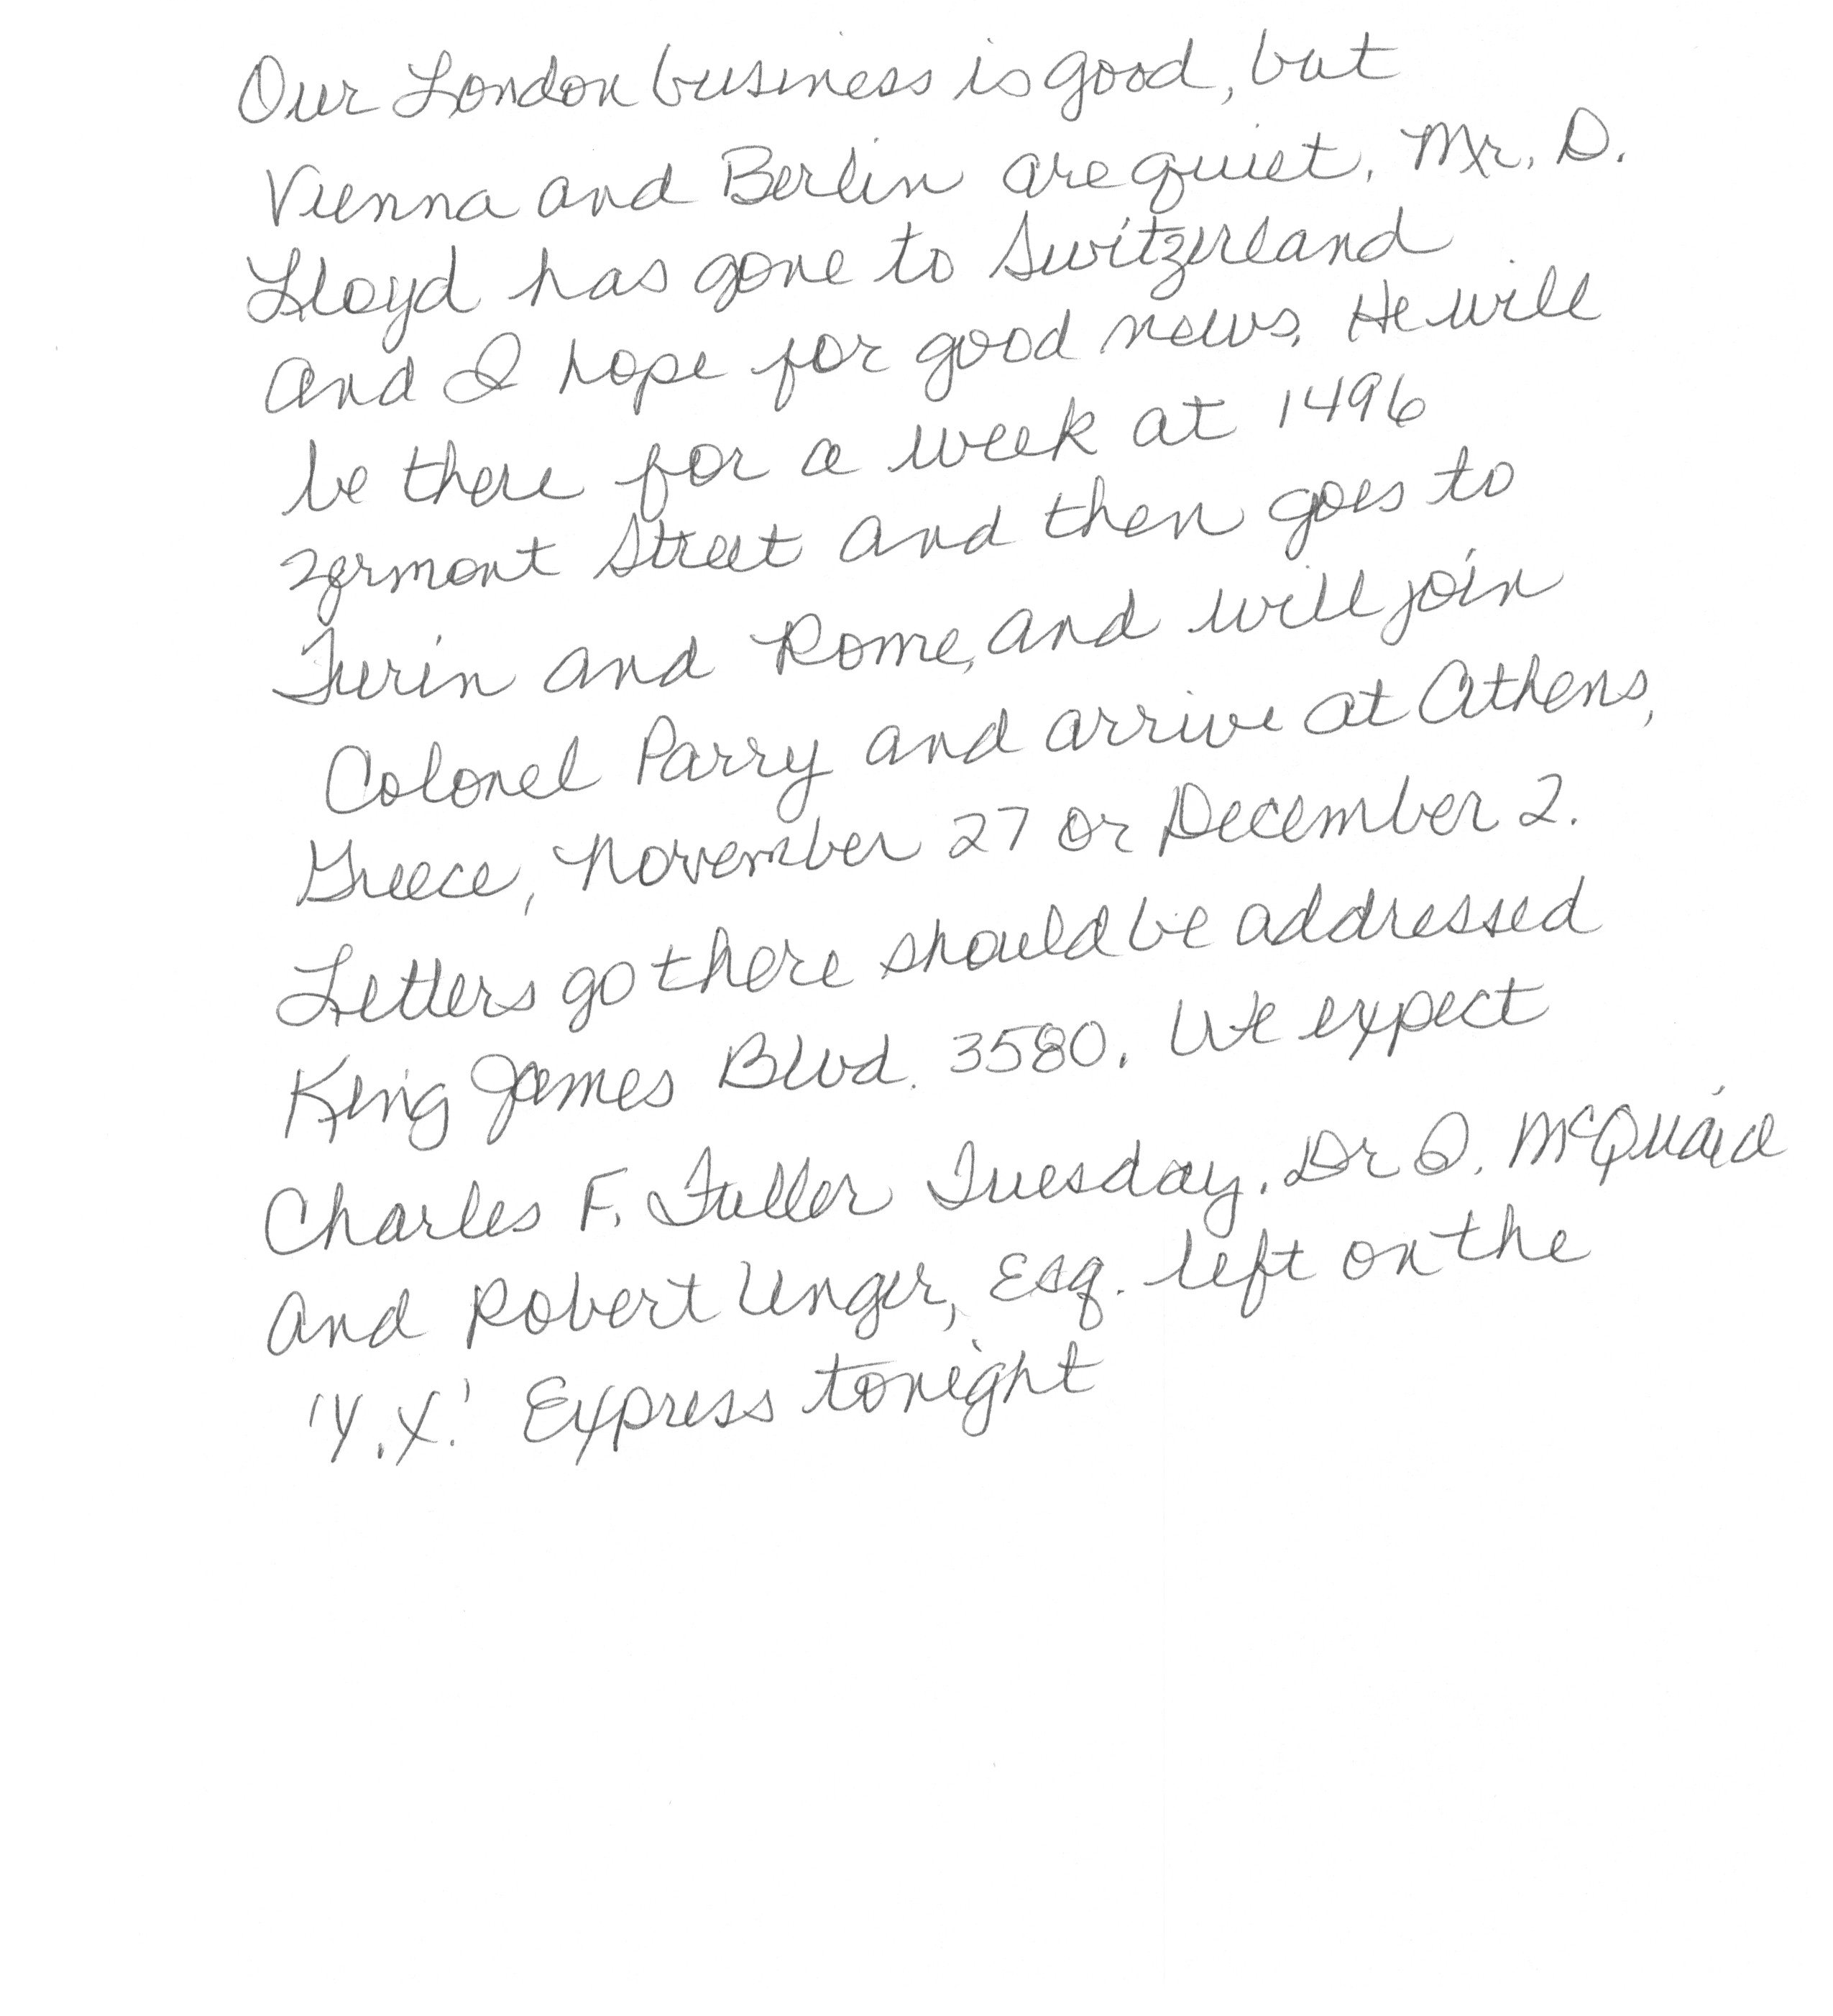 Our London business is good, but
Vienna and Berlin are quiet. Mr. D.
Lloyd has gone to Switzerland
and I hope for good news. He will
be there for a week at 1496
Zermont Street and then goes to
Turin and Rome, and will join
Colonel Parry and arrive at Athens,
Greece, November 27 or December 2.
Letters go there should be addressed
King James Blvd. 3580. We expect
Charles F. Fuller Tuesday. Dr Q. McQuaid
and Robert Unger, Esq. left on the
'Y.X.' Express tonight